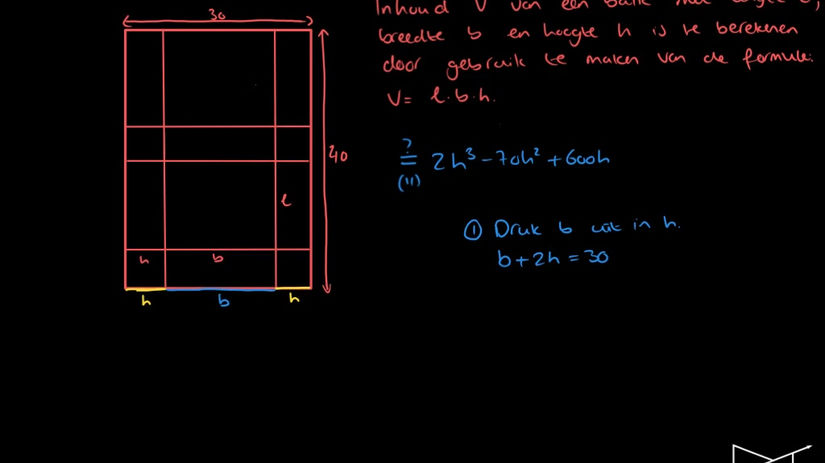 30
Inhoud V van een balk met
breedte b en hoogte h is te berekenen
door gebruik te maken van de formule:
V = l.b.h.
40
?
= 2h³ - 70h² + 600h
(!!)
l
① Druk b uit in h.
h b
b + 2h = 30
h b h